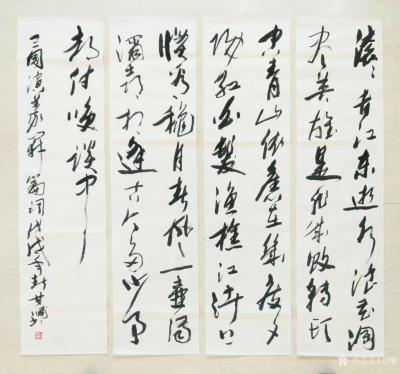 滚々长江东逝水浪花淘
尽英雄是非成败转头
空青山依旧在几度夕
阳红白髮渔樵江渚上
惯看穐月春风一壶浊
酒喜相逢古今多少事
都付笑谈中
三國演义开篇词戊戌年